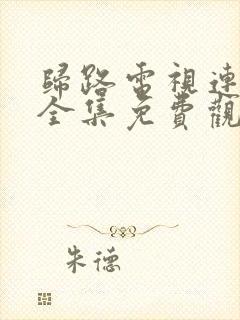 歸路電視連
全集免費觀
朱德